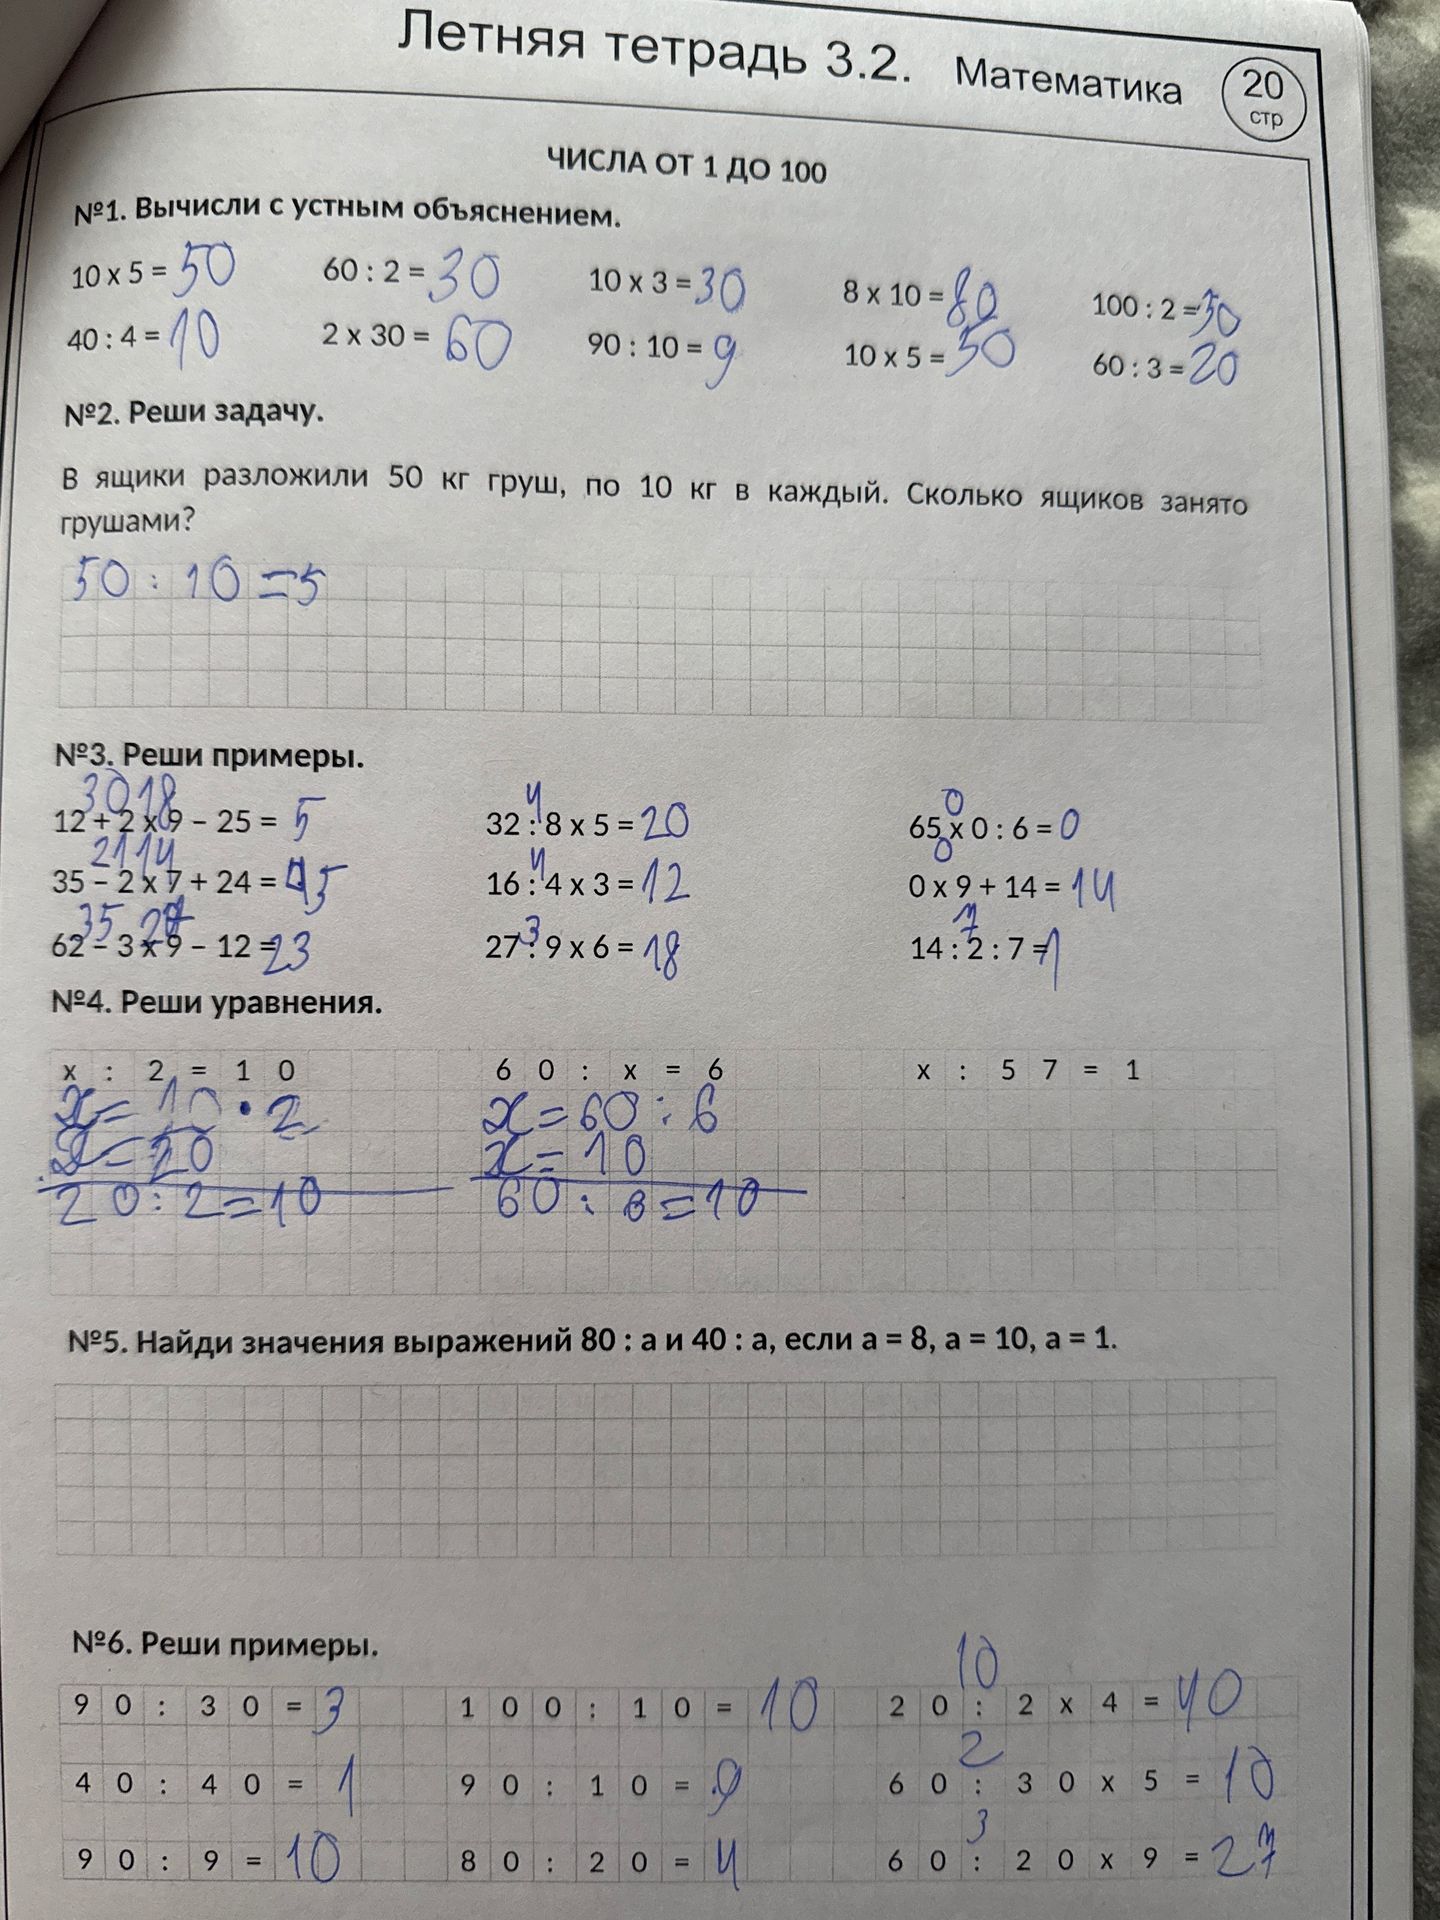 Летняя тетрадь 3.2. Математика 20 стр
ЧИСЛА ОТ 1 ДО 100
№1. Вычисли с устным объяснением.
10 x 5 = 50 60 : 2 = 30 10 x 3 = 30 8 x 10 = 80 100 : 2 = 50
40 : 4 = 10 2 x 30 = 60 90 : 10 = 9 10 x 5 = 50 60 : 3 = 20
№2. Реши задачу.
В ящики разложили 50 кг груш, по 10 кг в каждый. Сколько ящиков занято
грушами?
50 : 10 = 5
№3. Реши примеры.
30 18 4 0
12 + 2 x 9 – 25 = 5 32 : 8 x 5 = 20 65 x 0 : 6 = 0
21 14 4 0
35 – 2 x 7 + 24 = 45 16 : 4 x 3 = 12 0 x 9 + 14 = 14
35 27 3 7
62 – 3 x 9 – 12 = 23 27 : 9 x 6 = 18 14 : 2 : 7 = 1
№4. Реши уравнения.
x : 2 = 10 60 : x = 6 x : 57 = 1
x = 10 · 2 x = 60 : 6
x = 20 x = 10
20 : 2 = 10 60 : 6 = 10
№5. Найди значения выражений 80 : а и 40 : а, если а = 8, а = 10, а = 1.
№6. Реши примеры.
10
90 : 30 = 3 100 : 10 = 10 20 : 2 x 4 = 40
2
40 : 40 = 1 90 : 10 = 9 60 : 30 x 5 = 10
3
90 : 9 = 10 80 : 20 = 4 60 : 20 x 9 = 27